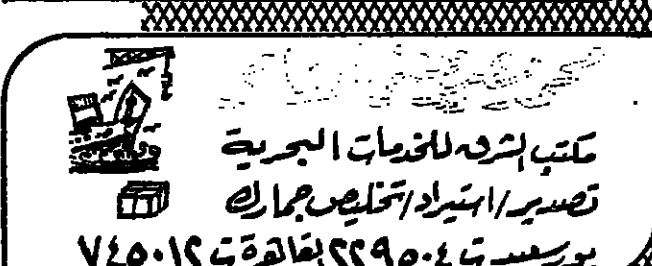 مكتب الشرق للخدمات البحرية
تصدير/استيراد/تخليص جمارك
بورسعيد ت ٢٢٩٥٠٤ القاهرة ت ٧٤٥٠١٢